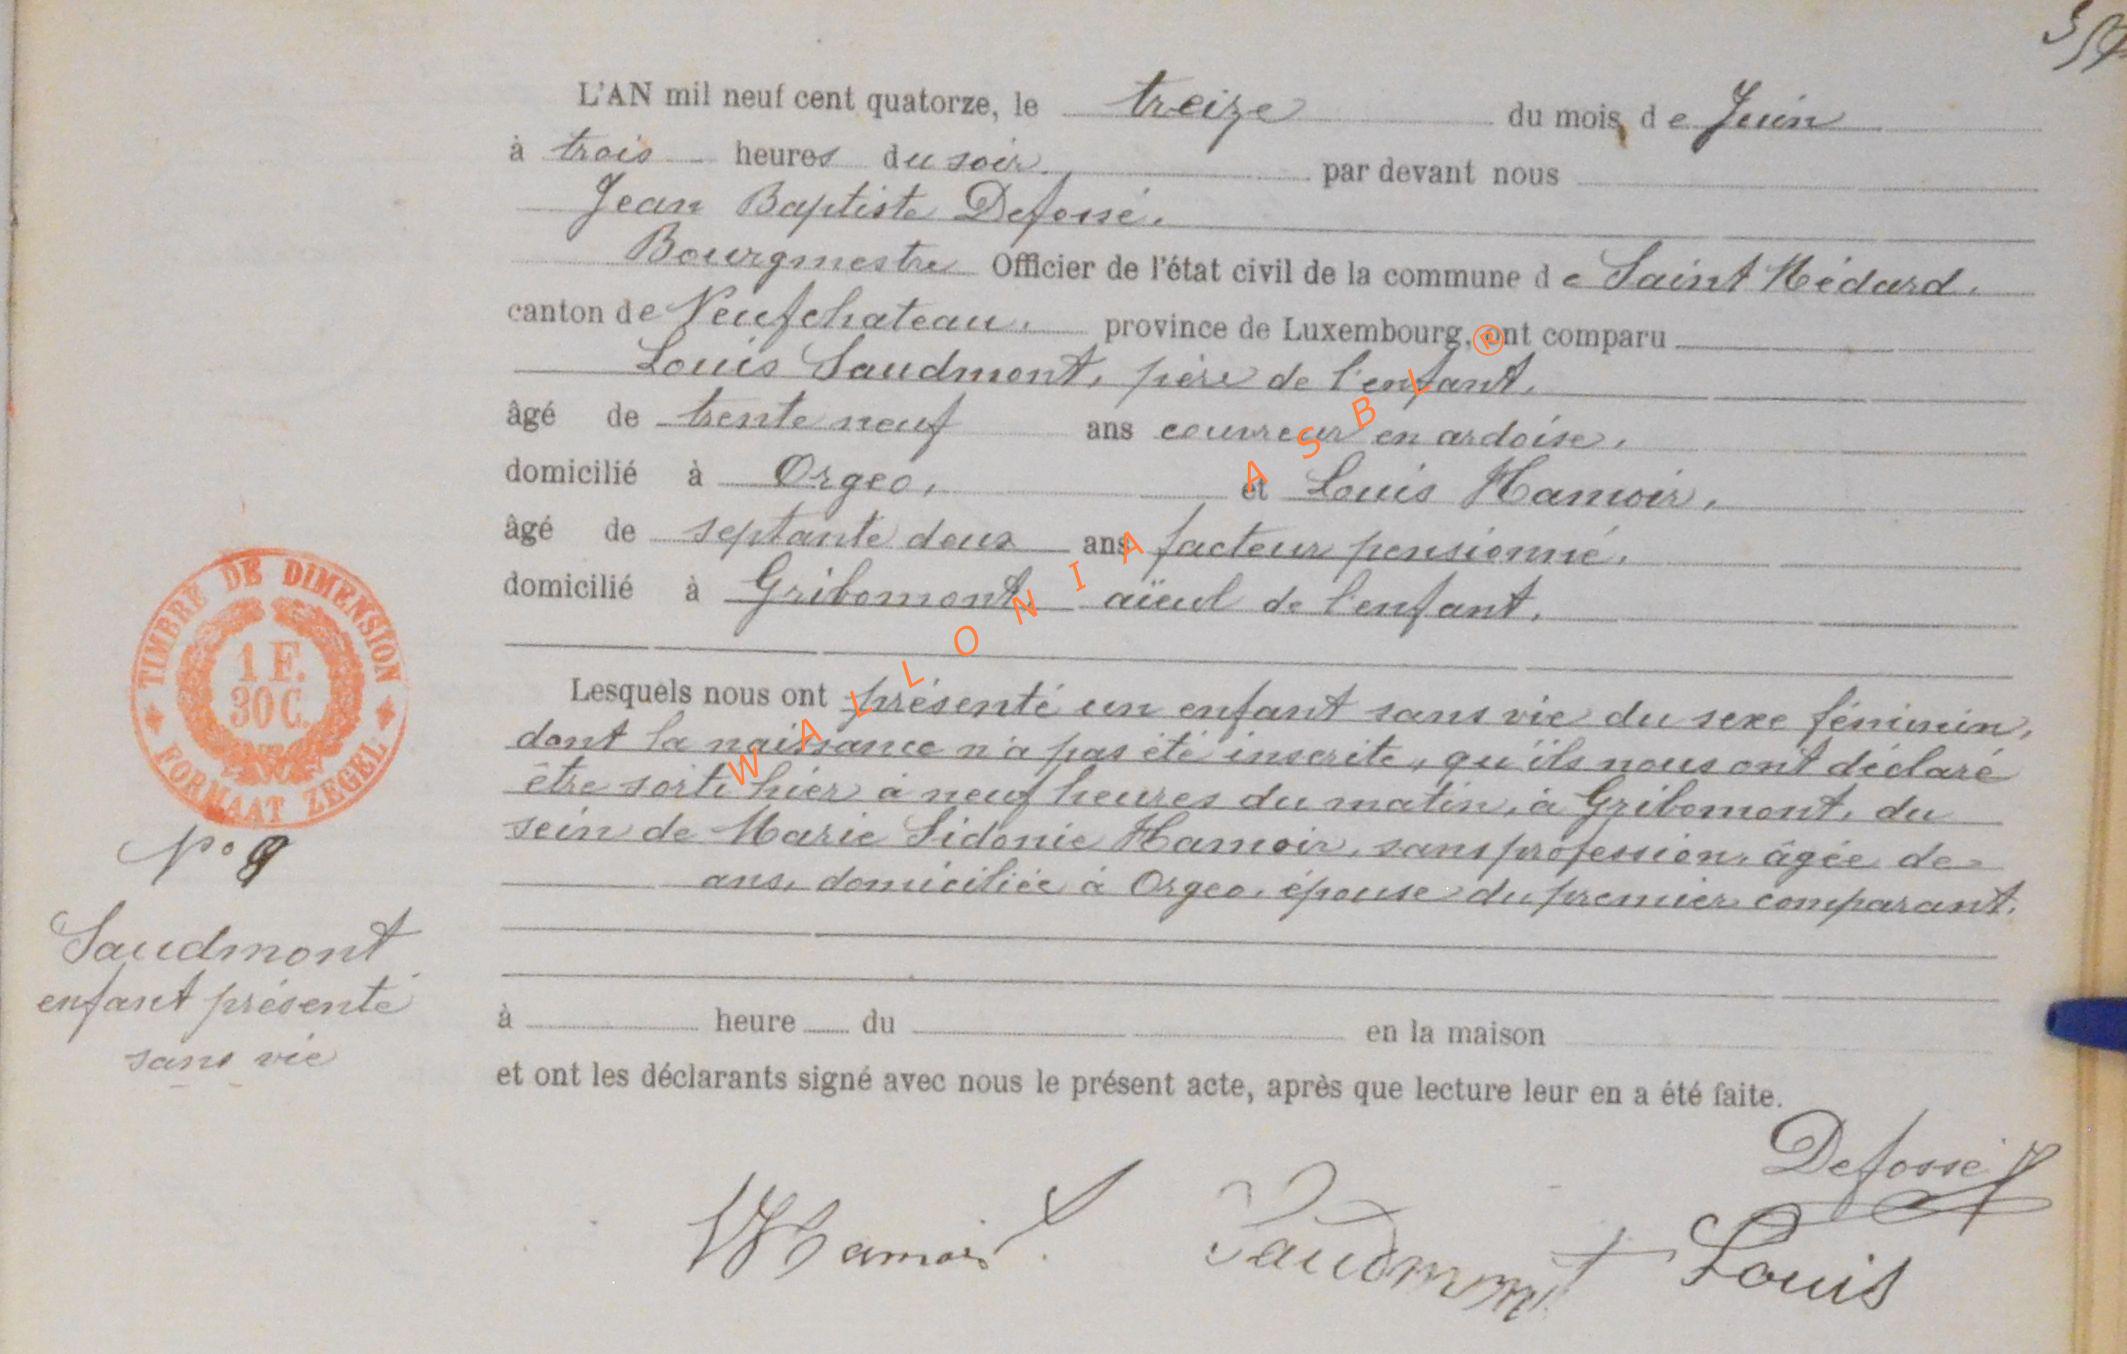 L'AN mil neuf cent quatorze, le treize du mois de Juin
à trois heures du soir par devant nous
Jean Baptiste Defossé,
Bourgmestre Officier de l'état civil de la commune de Saint Médard,
canton de Neufchateau, province de Luxembourg, ont comparu
Louis Saudmont, père de l'enfant,
âgé de trente neuf ans couvreur en ardoise,
domicilié à Orgeo, et Louis Hamoir,
âgé de septante deux ans facteur pensionné,
domicilié à Gribomont, aïeul de l'enfant,
Lesquels nous ont présenté un enfant sans vie du sexe féminin,
dont la naissance n'a pas été inscrite, qu'ils nous ont déclaré
être sorti hier à neuf heures du matin, à Gribomont, du
sein de Marie Sidonie Hamoir, sans profession, âgée de
ans, domiciliée à Orgeo, épouse du premier comparant.
à heure du en la maison
et ont les déclarants signé avec nous le présent acte, après que lecture leur en a été faite.
Defossé
Hamoir Saudmont Louis
TIMBRE DE DIMENSION
1 F.
30 C.
FORMAAT ZEGEL
N° 9
Saudmont
enfant présenté
sans vie
WALLONIA ASBL ®